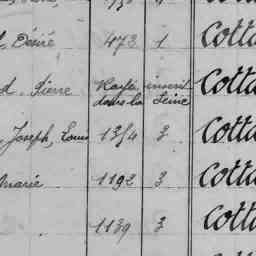 Désiré 473 1 Cotta
Pierre Rayé inscrit Cotta
dans la Seine
Joseph, Louis 1354 3 Cotta
Marie 1192 3 Cotta
1139 3 Cotta